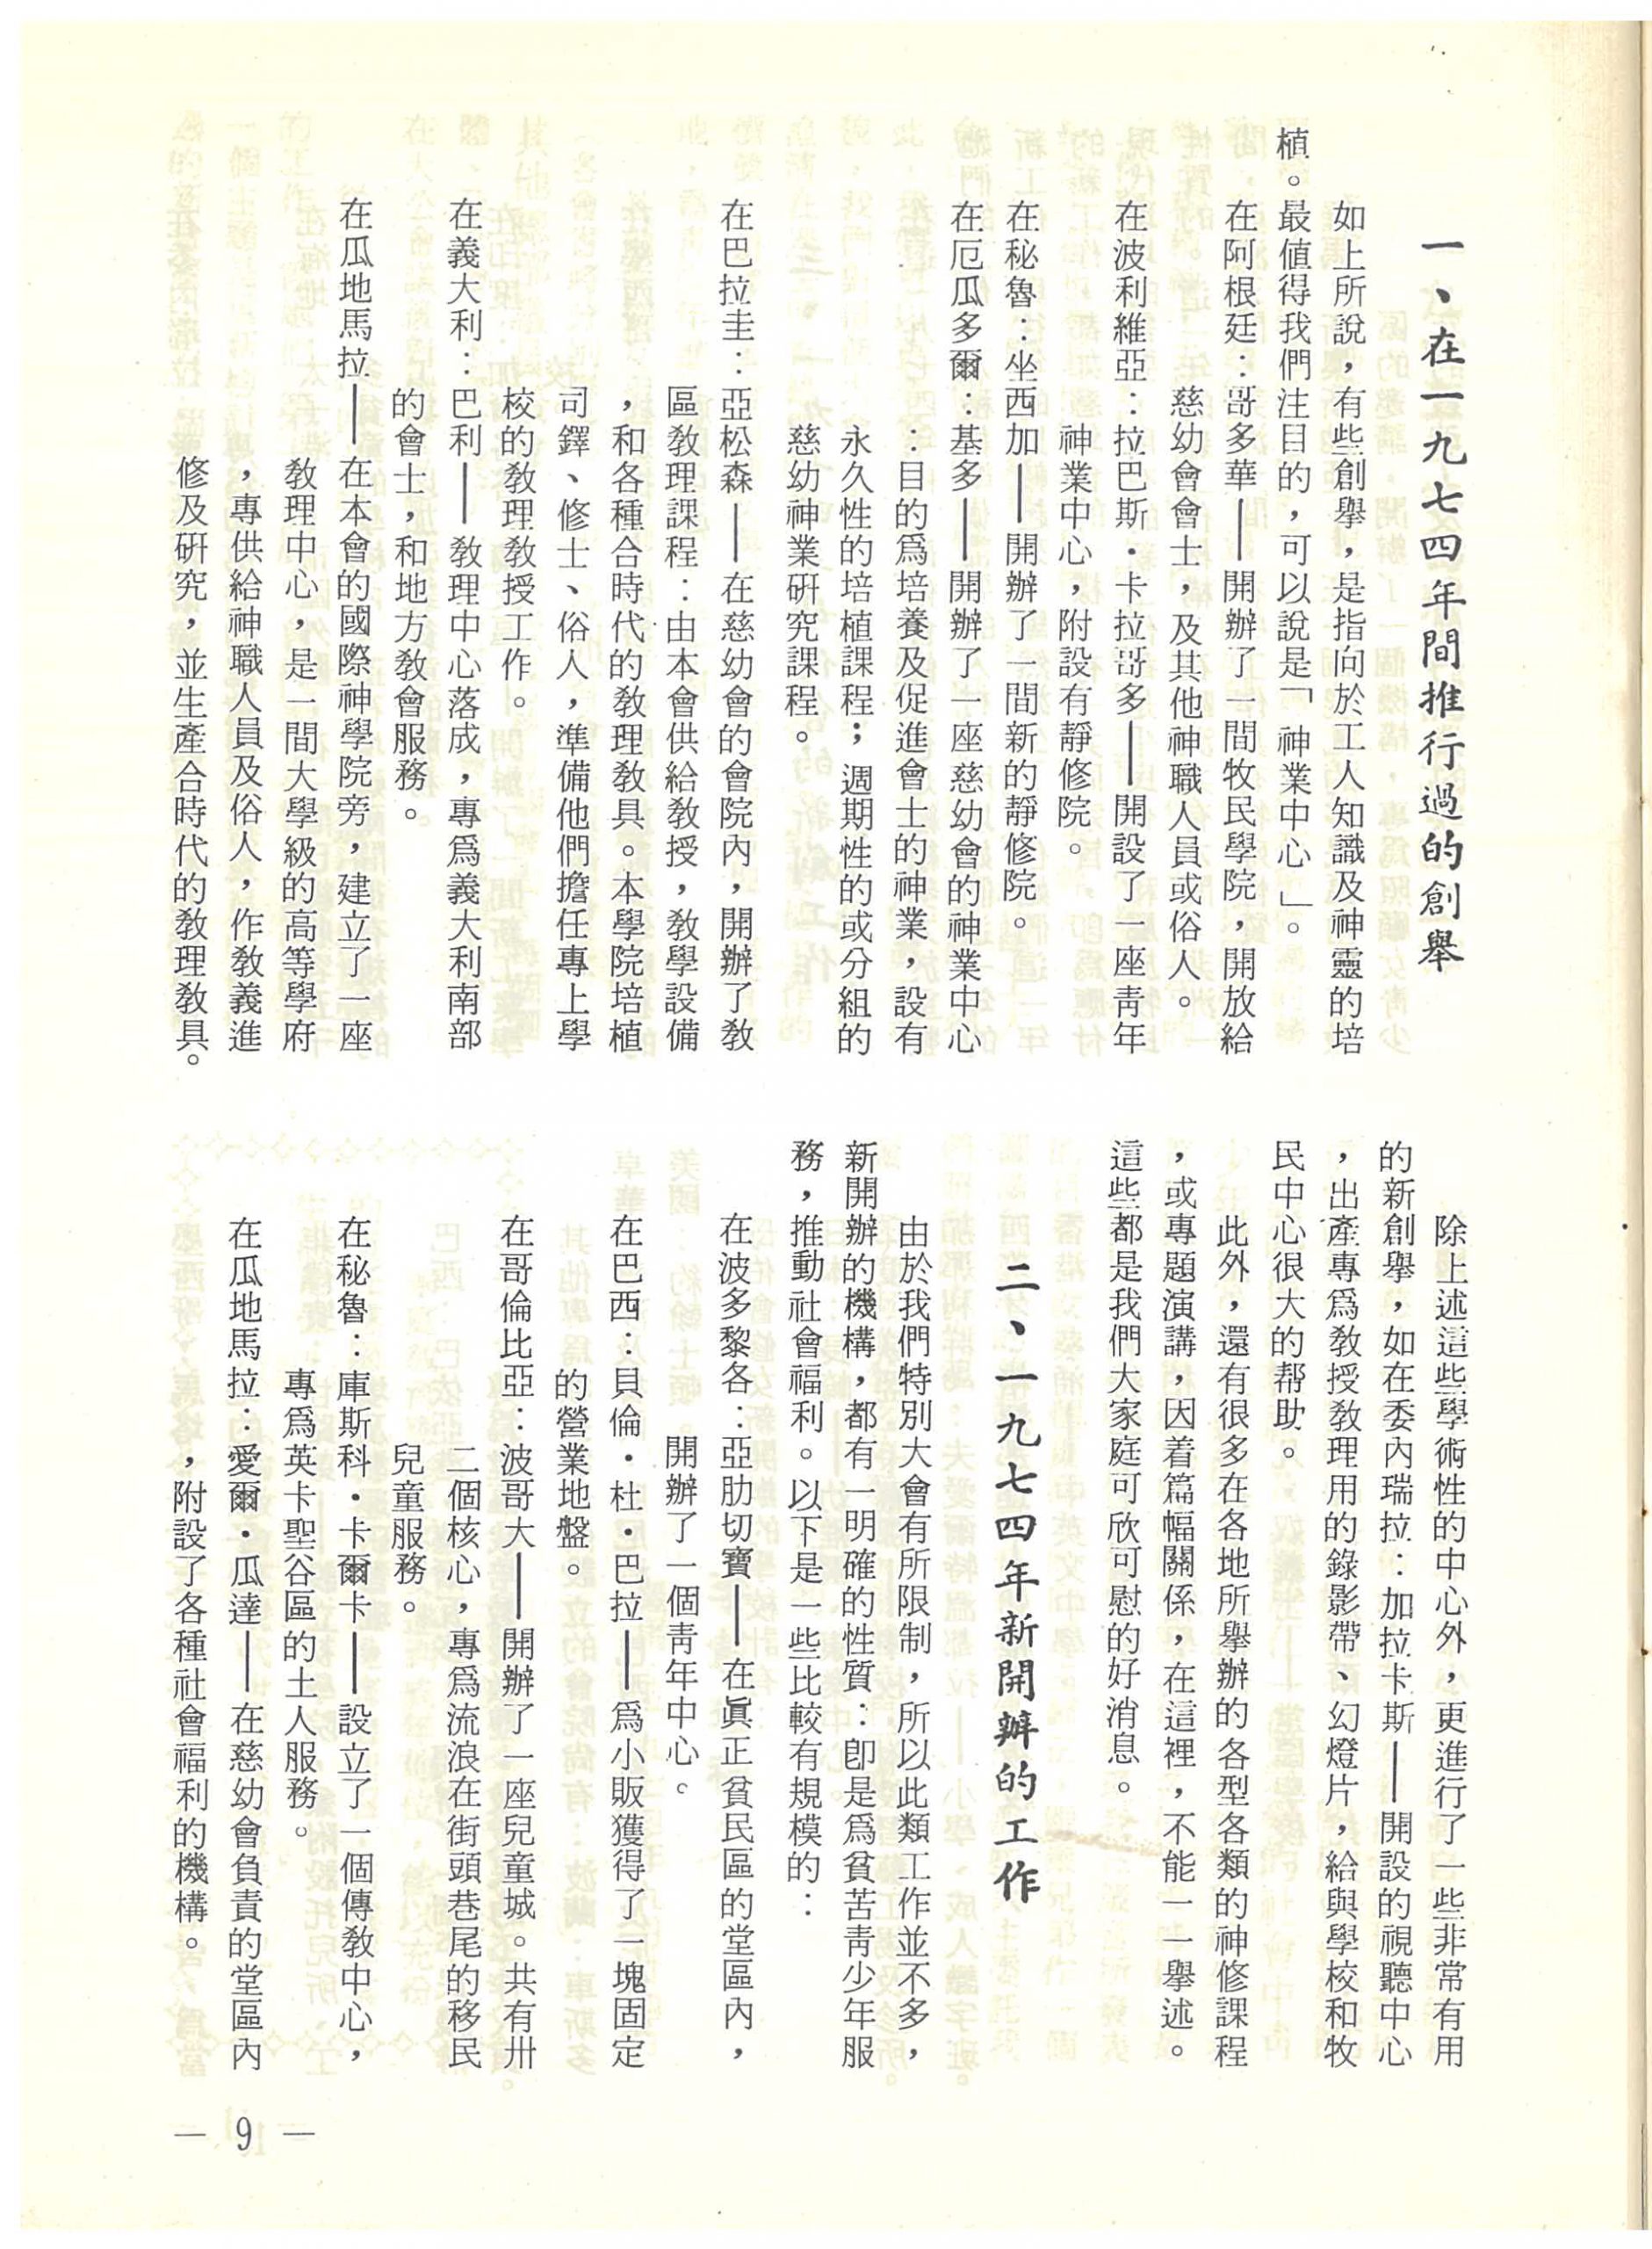 一、在一九七四年間推行過的創舉
如上所說，有些創舉，是指向於工人知識及神靈的培
植。最值得我們注目的，可以說是「神業中心」。
在阿根廷：哥多華——開辦了一間牧民學院，開放給
慈幼會會士，及其他神職人員或俗人。
在波利維亞：拉巴斯・卡拉哥多——開設了一座青年
神業中心，附設有靜修院。
在秘魯：坐西加——開辦了一間新的靜修院。
在厄瓜多爾：基多——開辦了一座慈幼會的神業中心
：目的爲培養及促進會士的神業，設有
永久性的培植課程；週期性的或分組的
慈幼神業研究課程。
在巴拉圭：亞松森——在慈幼會的會院內，開辦了教
區教理課程：由本會供給教授，教學設備
，和各種合時代的教理教具。本學院培植
司鐸、修士、俗人，準備他們擔任專上學
校的教理教授工作。
在義大利：巴利——教理中心落成，專爲義大利南部
的會士，和地方教會服務。
在瓜地馬拉——在本會的國際神學院旁，建立了一座
教理中心，是一間大學級的高等學府
，專供給神職人員及俗人，作教義進
修及研究，並生產合時代的教理教具。
除上述這些學術性的中心外，更進行了一些非常有用
的新創舉，如在委內瑞拉：加拉卡斯——開設的視聽中心
，出產專爲教授教理用的錄影帶、幻燈片，給與學校和牧
民中心很大的帮助。
此外，還有很多在各地所舉辦的各型各類的神修課程
，或專題演講，因着篇幅關係，在這裡，不能一一舉述。
這些都是我們大家庭可欣可慰的好消息。
二、一九七四年新開辦的工作
由於我們特別大會有所限制，所以此類工作並不多，
新開辦的機構，都有一明確的性質：卽是爲貧苦靑少年服
務，推動社會福利。以下是一些比較有規模的：
在波多黎各：亞肋切寶——在眞正貧民區的堂區內，
開辦了一個靑年中心。
在巴西：貝倫・杜・巴拉——爲小販獲得了一塊固定
的營業地盤。
在哥倫比亞：波哥大——開辦了一座兒童城。共有卅
二個核心，專爲流浪在街頭巷尾的移民
兒童服務。
在秘魯：庫斯科・卡爾卡——設立了一個傳教中心，
專爲英卡聖谷區的土人服務。
在瓜地馬拉：愛爾・瓜達——在慈幼會負責的堂區內
，附設了各種社會福利的機構。
— 9 —